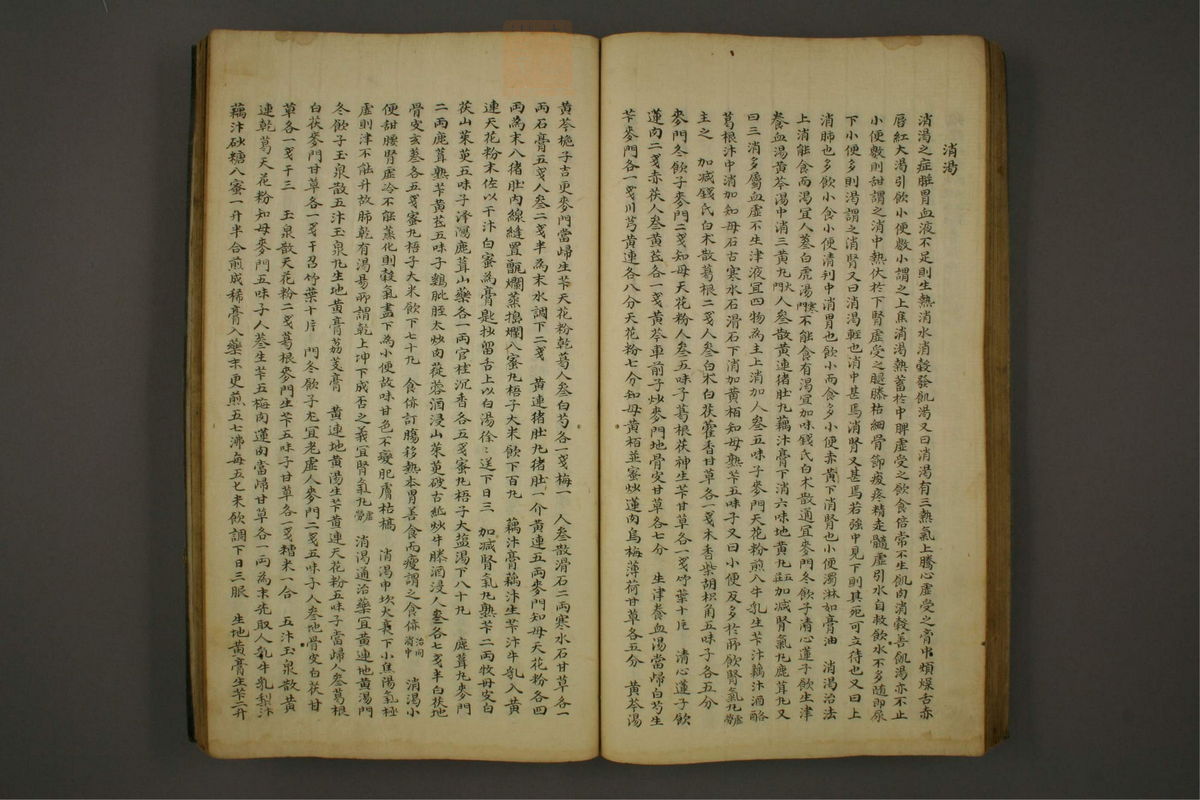 消渴
消渴之症脏胃血液不足則生熱消水消穀發飢渴又曰消渴有三熱氣上騰心虛受之膏串煩燥舌赤
唇紅大渴引飲小便數小謂之上焦消渴熱蓄於中脾虛受之飲食倍常不生飢肉消穀善飢渴亦不止
小便數則甜謂之消中熱伏於下腎虛受之腿膝枯細骨節痠疼精走髓虛引水自救飲水不多隨即尿
下小便多則渴謂之消腎又曰消渴輕也消中甚焉消腎又甚焉若強中見下則其死可立待也又曰上
消肺也多飲小食小便清利中消胃也飲小而食多小便赤黃下消腎也小便濁淋如膏油 消渴治法
上消能食而渴宜人蔘白虎湯寒門不能食有渴宜加味錢氏白朮散通宜麥門冬飲子清心蓮子飲生津
養血湯黃芩湯中消三黃丸火門人叁散黃連猪肚丸藕汁膏下消六味地黃丸五加減腎氣丸鹿茸丸又
曰三消多屬血虛不生津液宜四物為主上消加人叁五味子麥門天花粉煎入牛乳生芐汁藕汁酒酪
葛根汁中消加知母石古寒水石滑石下消加黃栢知母熟芐五味子又曰小便反多於所飲腎氣丸虛勞
主之 加減錢氏白朮散葛根二戔人叁白朮白茯藿香甘草各一戔木香柴胡枳角五味子各五分
麥門冬飲子麥門二戔知母天花粉人叁五味子葛根茯神生芐甘草各一戔竹葉十片 清心蓮子飲
蓮肉二戔赤茯人叁黃茋各一戔黃芩車前子炒麥門地骨皮甘草各七分 生津養血湯當歸白芍生
芐麥門各一戔川芎黃連各八分天花粉七分知母黃栢並蜜炒蓮肉烏梅薄荷甘草各五分 黃芩湯
黃芩梔子吉更麥門當歸生芐天花粉乾葛人叁白芍各一戔梅一 人叁散滑石二兩寒水石甘草各一
兩石膏五戔人叁二戔半為末水調下二戔 黃連猪肚丸猪肚一介黃連五兩麥門知母天花粉各四
兩為末入猪肚內線縫置甑爛蒸搗爛入蜜丸梧子大米飲下百丸 藕汁膏藕汁生芐汁牛乳入黃
連天花粉末佐以干汁白蜜為膏匙抄留舌上以白湯徐〻送下日三 加減腎氣丸熟芐二兩牧丹皮白
茯山茱萸五味子澤瀉鹿茸山藥各一兩官桂沉香各五戔蜜丸梧子大盐湯下八十丸 鹿茸丸麥門
二兩鹿茸熟芐黃茋五味子鷄肶胵太炒肉蓯蓉酒浸山茱萸破古紙炒牛膝酒浸人叁各七戔半白茯地
骨皮玄蔘各五戔蜜丸梧子大米飲下七十丸 食㑊訂膓移熱本胃善食而瘦謂之食㑊治同消中 消渴小
便甜腰腎虛冷不能蒸化則穀氣盡下為小便故味甘色不變肥膚枯槁 消渴中坎火衰下小焦湯氣極
虛則津不能升故肺乾有渴易所謂乾上坤下成否之義宜腎氣丸虛勞 消渴通治藥宜黃連地黃湯門
冬飲子玉泉散五汁玉泉丸生地黃膏荔芰膏 黃連地黃湯生芐黃連天花粉五味子當歸人叁葛根
白茯麥門甘草各一戔干召竹葉十片 門冬飲子尤宜老虛人麥門二戔五味子人叁地骨皮白茯甘
草各一戔干三 玉泉散天花粉二戔葛根麥門生芐五味子甘草各一戔糯米一合 五汁玉泉散黃
連乾葛天花粉知母麥門五味子人蔘生芐五梅肉蓮肉當歸甘草各一兩為末先取人乳牛乳梨汁
藕汁砂糖八蜜一升半合煎成稀膏入藥末更煎五七沸每五匕米飲調下日三服 生地黃膏生芐二升